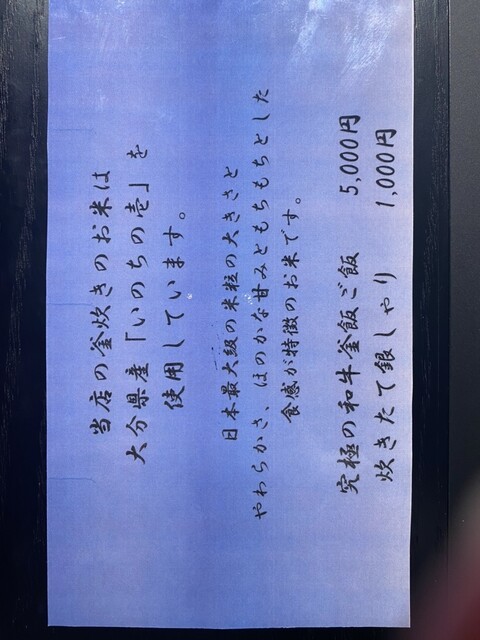 当店の釜炊きのお米は
大分県産「いのちの壱」を
使用しています。
日本最大級の米粒の大きさと
やわらかさ、ほのかな甘みともちもちとした
食感が特徴のお米です。
究極の和牛釜飯ご飯 5,000円
炊きたて銀しゃり 1,000円